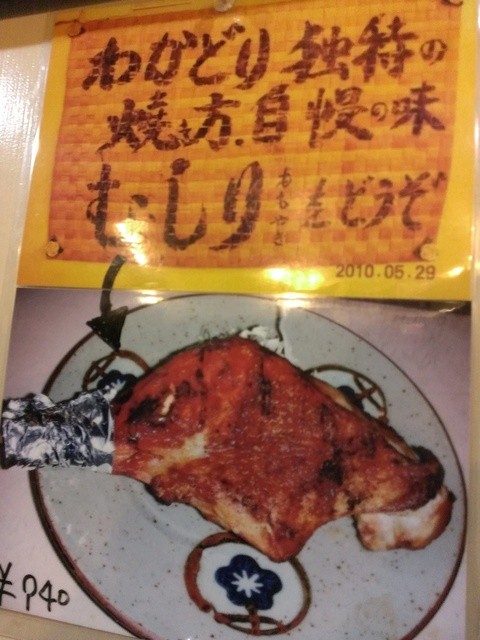 わかどり独特の
焼き方.自慢の味
むしり をどうぞ
2010.05.29
¥940